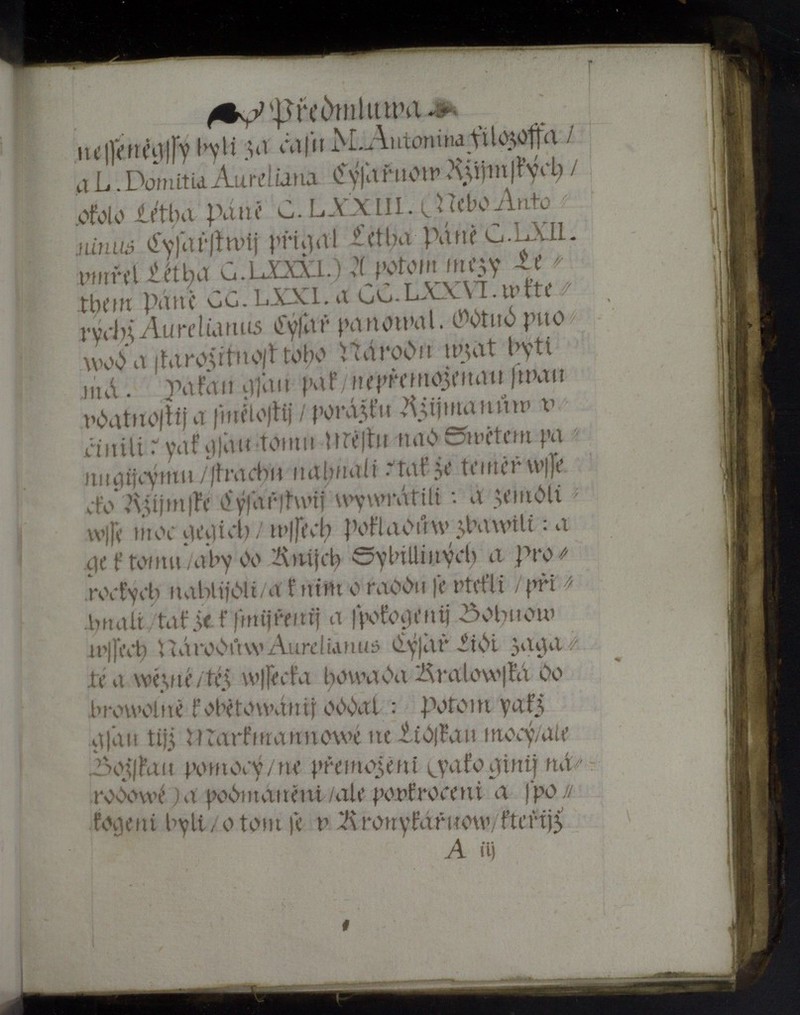 Předmluwa
neſſeněgſſý byli za čaſu M. Antonina filozoffa /
a L. Domitia Aureliana Cýſařuow Ržijmſkých /
okolo Létha Páně C. LXXIII. (Nebo Anto⸗
ninus Cyſařſtwij přigal Létha Páně C. LXII.
vmřel Létha C. LXXXI.) A potom mezy Le⸗
them Páně CC. LXXI. a CC. LXXVI. w kte⸗
rýchž Aurelianus Cýſař panowal. Odtud puo⸗
wod a ſtarožitnoſt toho Národu wzat byti
má. Yakau gſau pak / nepřemoženau ſwau
vdatnoſtij a ſměloſtij / porážku Ržijmanůw v⸗
činili : yak gſau tomu Měſtu nad Swětem pa⸗
nugijcýmu / ſtrachu nahnali : tak že teměř wſſe
cko Ržijmſké Cýſařſtwij wywrátili : a zemdli⸗
wſſe moc gegich / wſſech pokladůw zbawili : a
ge k tomu / aby do Knijch Sybilliných a Pro⸗
rockých nahlijdli / a k nim o raddu ſe vtekli / při⸗
hnali / tak že k ſmijřenij a ſpokogenij Bohuow
wſſech Národůw Aurelianus Cýſař Lidi zaga⸗
té a wězné / též wſſecka howada Kralowſká do
browolně k obětowánij oddal : Potom yakž
gſau tijž Markmannowé ne Lidſkau mocý / ale
Božſkau pomocý / ne přemoženi (yako ginij ná⸗
rodowé) a podmáněni / ale povkroceni a ſpo⸗
kogeni byli / o tom ſe v Kronykářuow / kteřijž
A iij